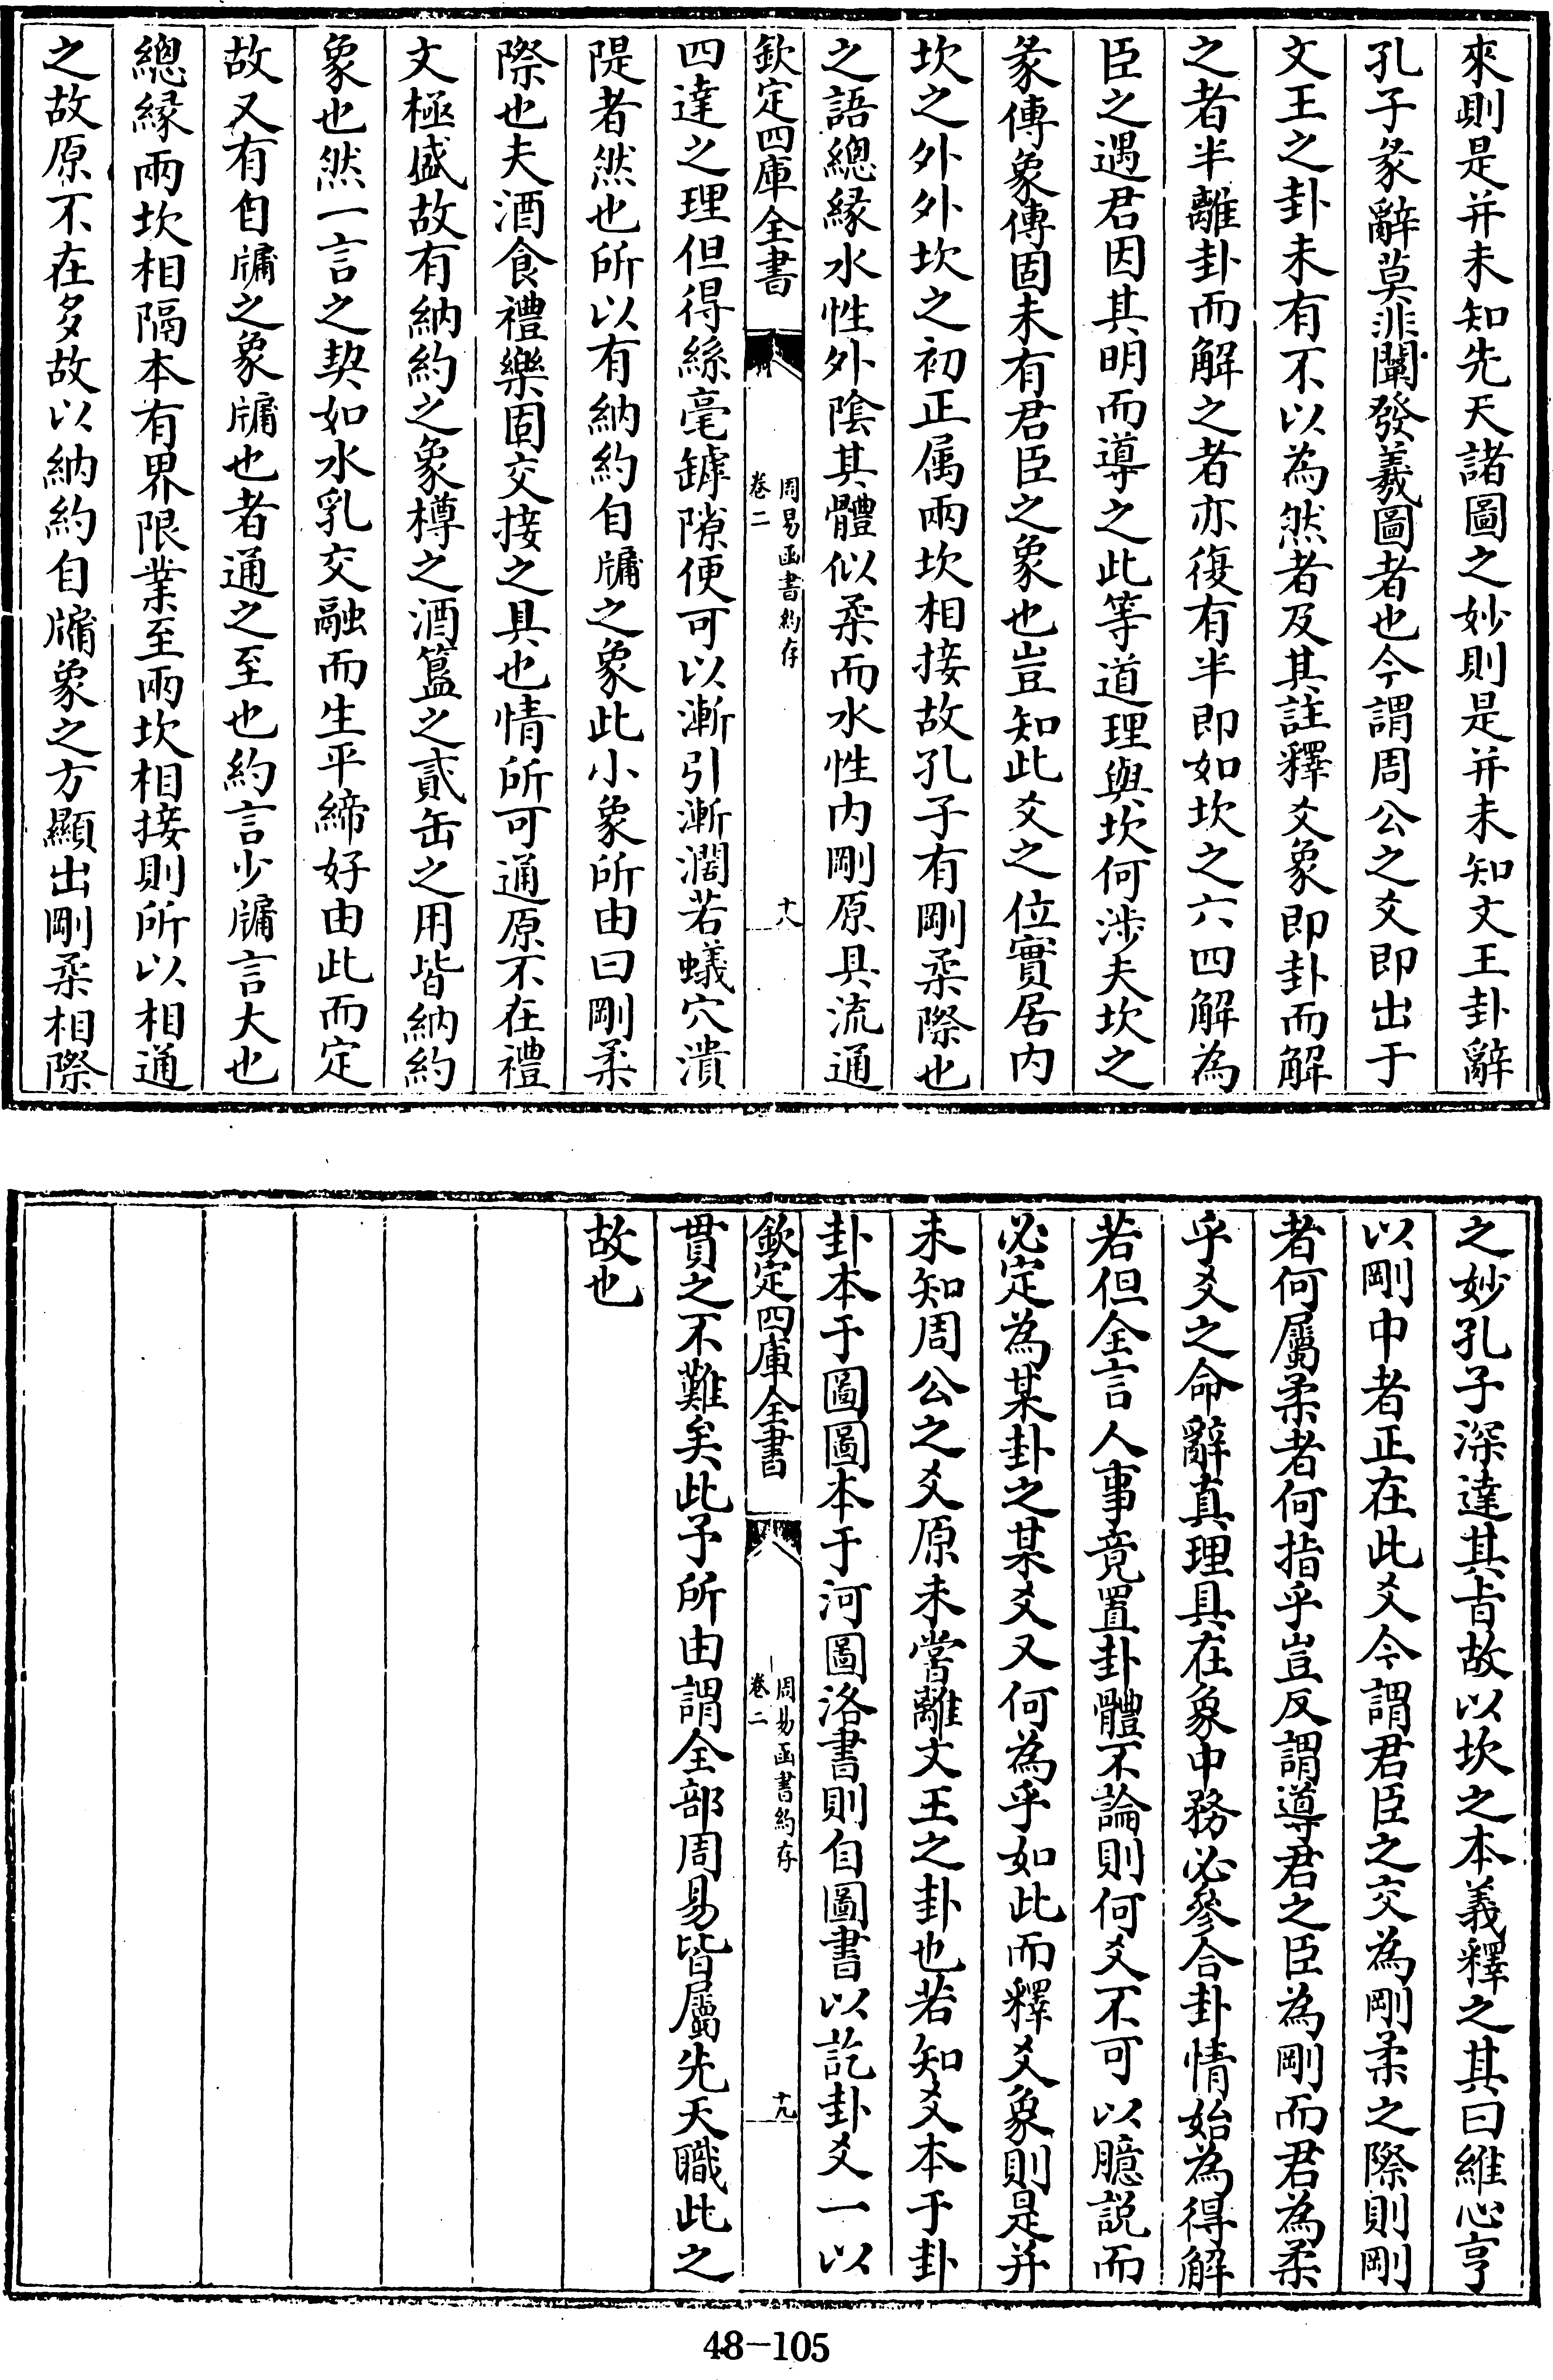 來則是并未知先天諸圖之妙則是并未知文王卦辭
孔子彖辭莫非闡發羲圖者也今謂周公之爻即出于
文王之卦未有不以為然者及其註釋爻象即卦而解
之者半離卦而解之者亦復有半即如坎之六四解為
臣之遇君因其明而導之此等道理與坎何涉夫坎之
彖傳象傳固未有君臣之象也豈知此爻之位實居内
坎之外外坎之初正属兩坎相接故孔子有剛柔際也
之語總緣水性外陰其體似柔而水性内剛原具流通
欽定四庫全書
周易函書約存
卷二
十八
四達之理但得絲毫罅隙便可以漸引漸濶若蟻穴潰
隄者然也所以有納約自牖之象此小象所由曰剛柔
際也夫酒食禮樂固交接之具也情所可通原不在禮
文極盛故有納約之象樽之酒簋之貳缶之用皆納約
象也然一言之契如水乳交融而生平締好由此而定
故又有自牖之象牖也者通之至也約言少牖言大也
總緣兩坎相隔本有界限業至兩坎相接則所以相通
之故原不在多故以納約自牖象之方顯出剛柔相際
之妙孔子深達其旨故以坎之本義釋之其曰維心亨
以剛中者正在此爻今謂君臣之交為剛柔之際則剛
者何屬柔者何指乎豈反謂導君之臣為剛而君為柔
乎爻之命辭真理具在象中務必參合卦情始為得解
若但全言人事竟置卦體不論則何爻不可以臆説而
必定為某卦之某爻又何為乎如此而釋爻象則是并
未知周公之爻原未嘗離文王之卦也若知爻本于卦
卦本于圖圖本于河圖洛書則自圖書以訖卦爻一以
欽定四庫全書
周易函書約存
卷二
十九
貫之不難矣此予所由謂全部周易皆屬先天職此之
故也
48-105